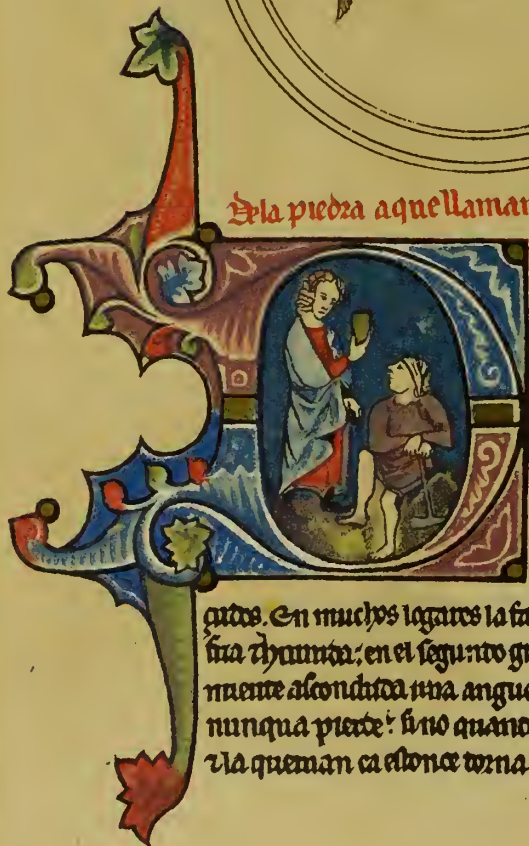 Dela piedra aquellaman
En muchos logares la fa
fria τ humida: en el segundo gr
miente ascondida una angu
nunqua pierde: si no quand
τ la queman ca estonce torna